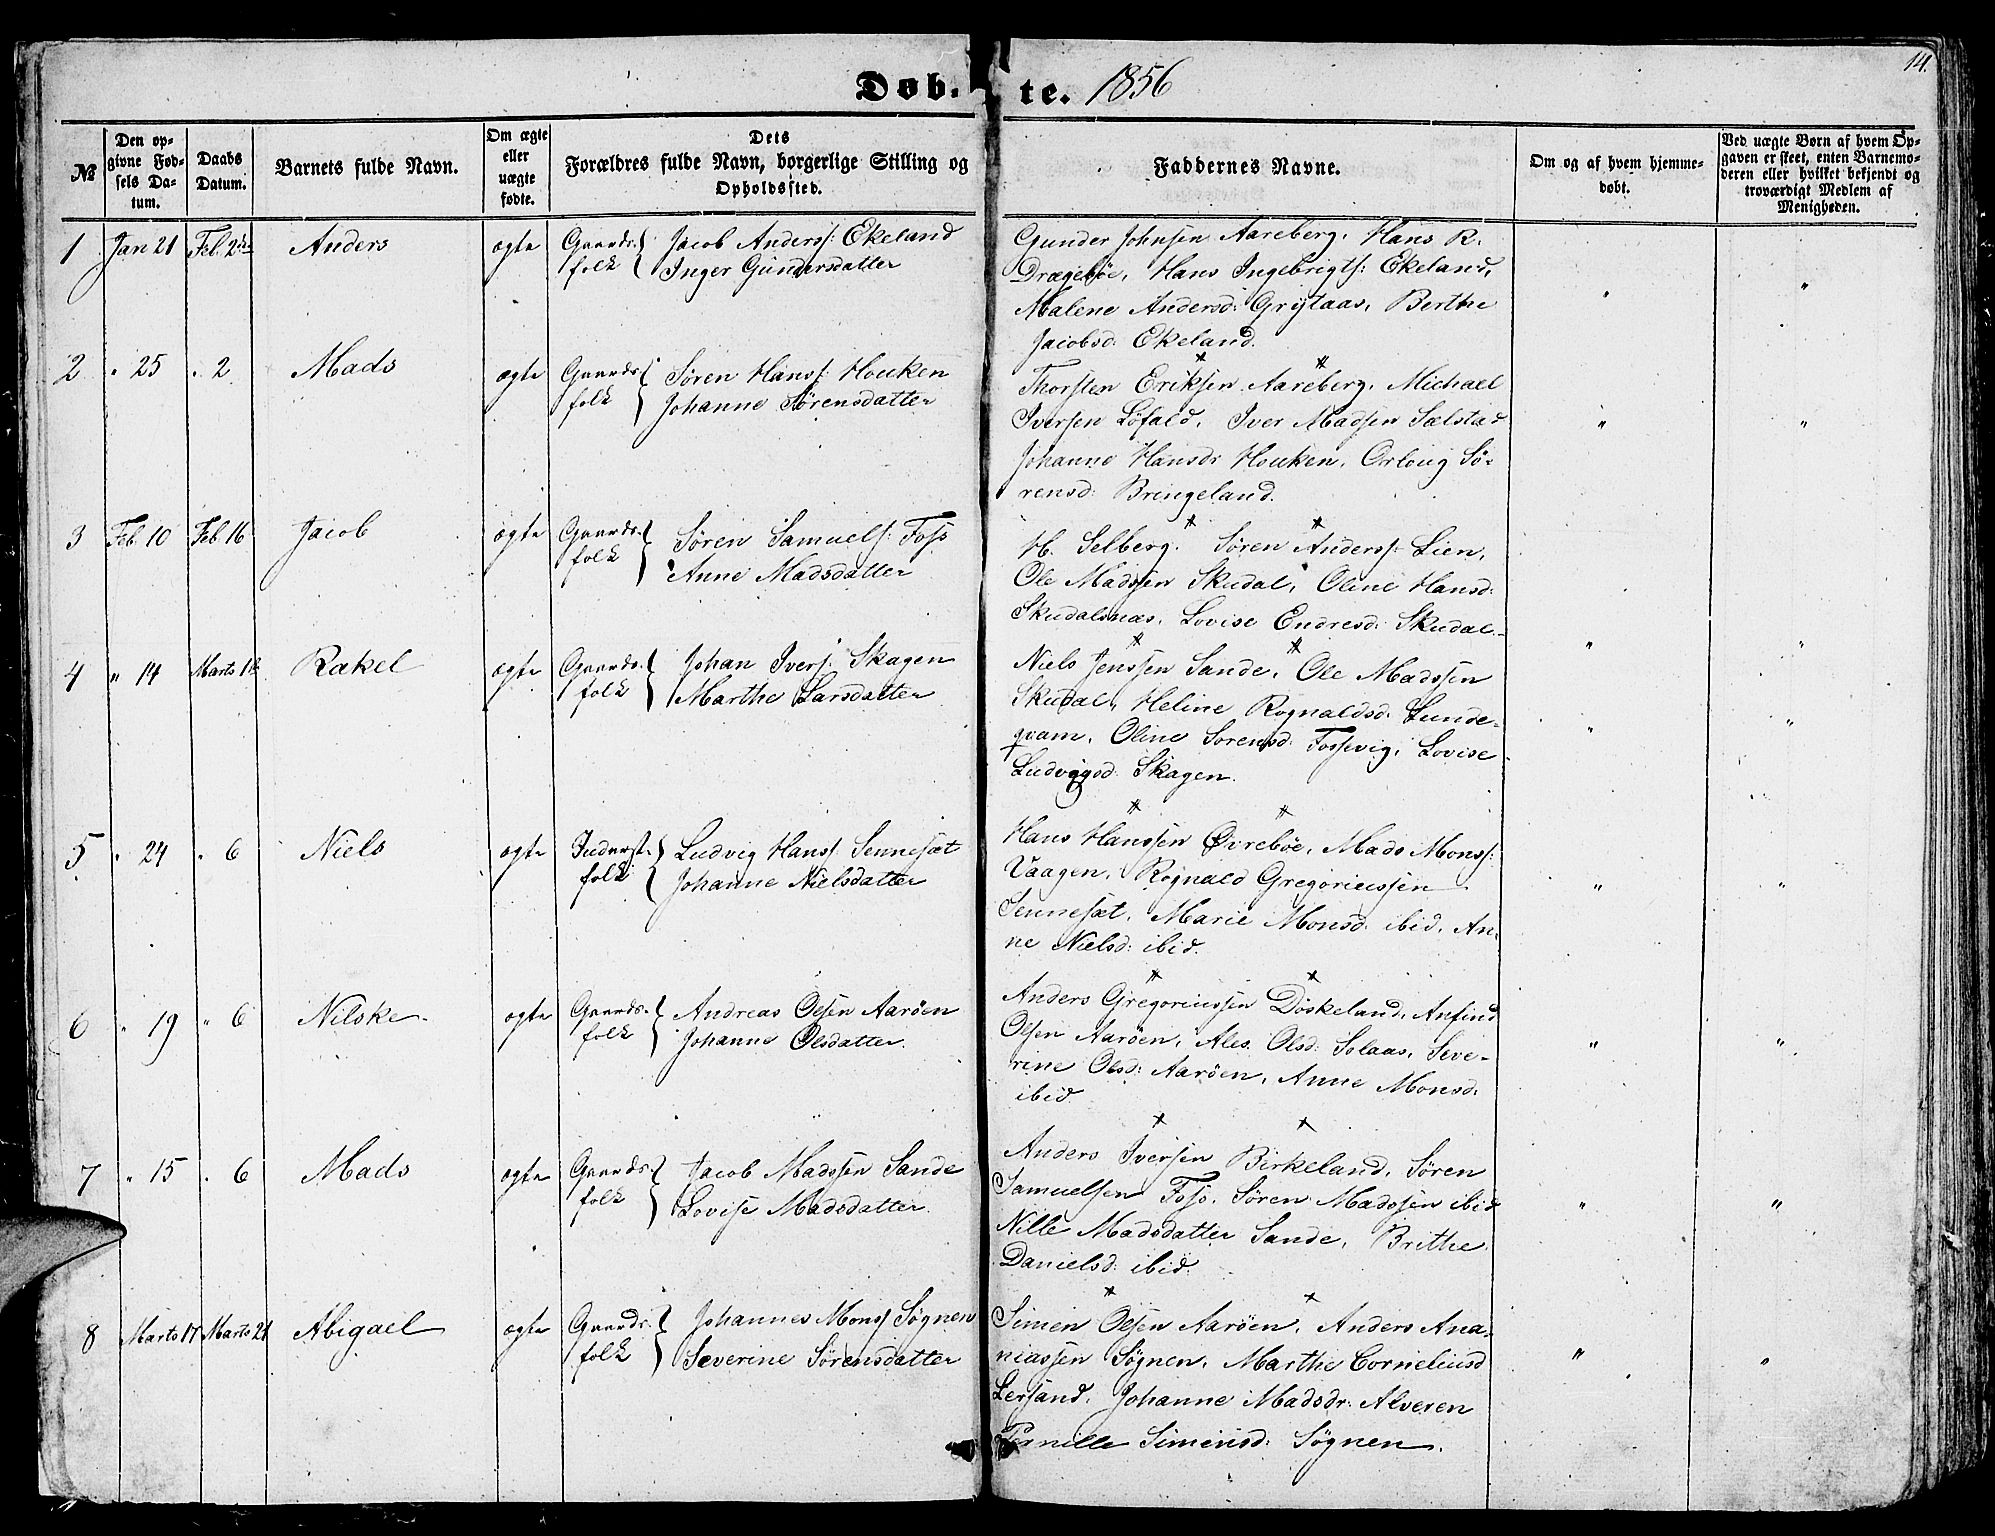 14.
Døb. te. 1856
№
Den op-
givne Fød-
sels Da-
tum.
Daabs
Datum.
Barnets fulde Navn.
Om ægte
eller
uægte
fødte.
Dets
Forældres fulde Navn, borgerlige Stilling og
Opholdssted.
Faddernes Navne.
Om og af hvem hjemme-
døbt.
Ved uægte Børn af hvem Op-
gaven er skeet, enten Barnemo-
deren eller hvilket bekjendt og
troværdigt Medlem af
Menigheden.
1 Jan 21 Feb. 2den Anders ægte Gaards- Jacob Anderss: Ekeland
folk Inger Gundersdatter
Gunder Johnsen Aareberg, Hans R.
Drægebøe, Hans Ingebrigts: Ekeland,
Malene Andersd: Grytaas, Berthe
Jacobsd: Ekeland.
" "
2 " 25 " 2 Mads ægte Gaards- Søren Hanss: Houken
folk Johanne Sørensdatter
Thorsten Eriksen Aareberg, Michael
Iversen Løfald, Iver Madsen Sælstad
Johanne Hansdr Houken, Orloug Sø-
rensd: Bringeland.
" "
3 Feb. 10 Feb. 16 Jacob ægte Gaards- Søren Samuels: Foss
folk Anne Madsdatter
H. Selberg. Søren Anderss: Lien,
Ole Madssen Skudal, Oline Hansd:
Skudalsnæs, Lovise Endresd: Skudal.
" "
4 " 14 Marts 1ste Rakel ægte Gaards- Johan Ivers: Skagen
folk Marthe Larsdatter
Niels Jenssen Sande, Ole Madssen
Skudal, Heline Rognaldsd: Lunde-
qvam, Oline Sorensd: Fossevig, Lovise
Ludvigsd: Skagen.
" "
5 " 24 " 6 Niels ægte Inderst- Ludvig Hanss: Sennesæt
folk Johanne Nielsdatter
Hans Hanssen Øvrebøe, Mads Monss:
Vaagen, Rognald Gregoriussen
Sennesæt, Marie Monsd: ibid, An-
ne Nielsd: ibid.
" "
6 " 19 " 6 Nilske ægte Gaards- Andreas Olsen Aarøen
folk Johanne Olsdatter.
Anders Gregoriussen Døskeland, Anfind
Olsen Aarøen, Ales Olsd: Solaas, Seve-
rine Olsd: Aarøen, Anne Monsd:
ibid
" "
7 " 15 " 6 Mads ægte Gaards- Jacob Madssen Sande
folk Lovise Madsdatter.
Anders Iversen Birkeland, Søren
Samuelsen Foss, Søren Madssen ibid
Nille Madsdatter Sande, Brithe
Danielsd: ibid:
" "
8 Marts 17 Marts 21 Abigael ægte Gaards- Johannes Monss Søgnen
folk Severine Sørensdatter
Simen Olsen Aarøen, Anders Ana-
niassen Søgnen, Marthe Corneliusd
Lersand, Johanne Madsdr: Alveren
Pernille Simensd: Søgnen.
" "